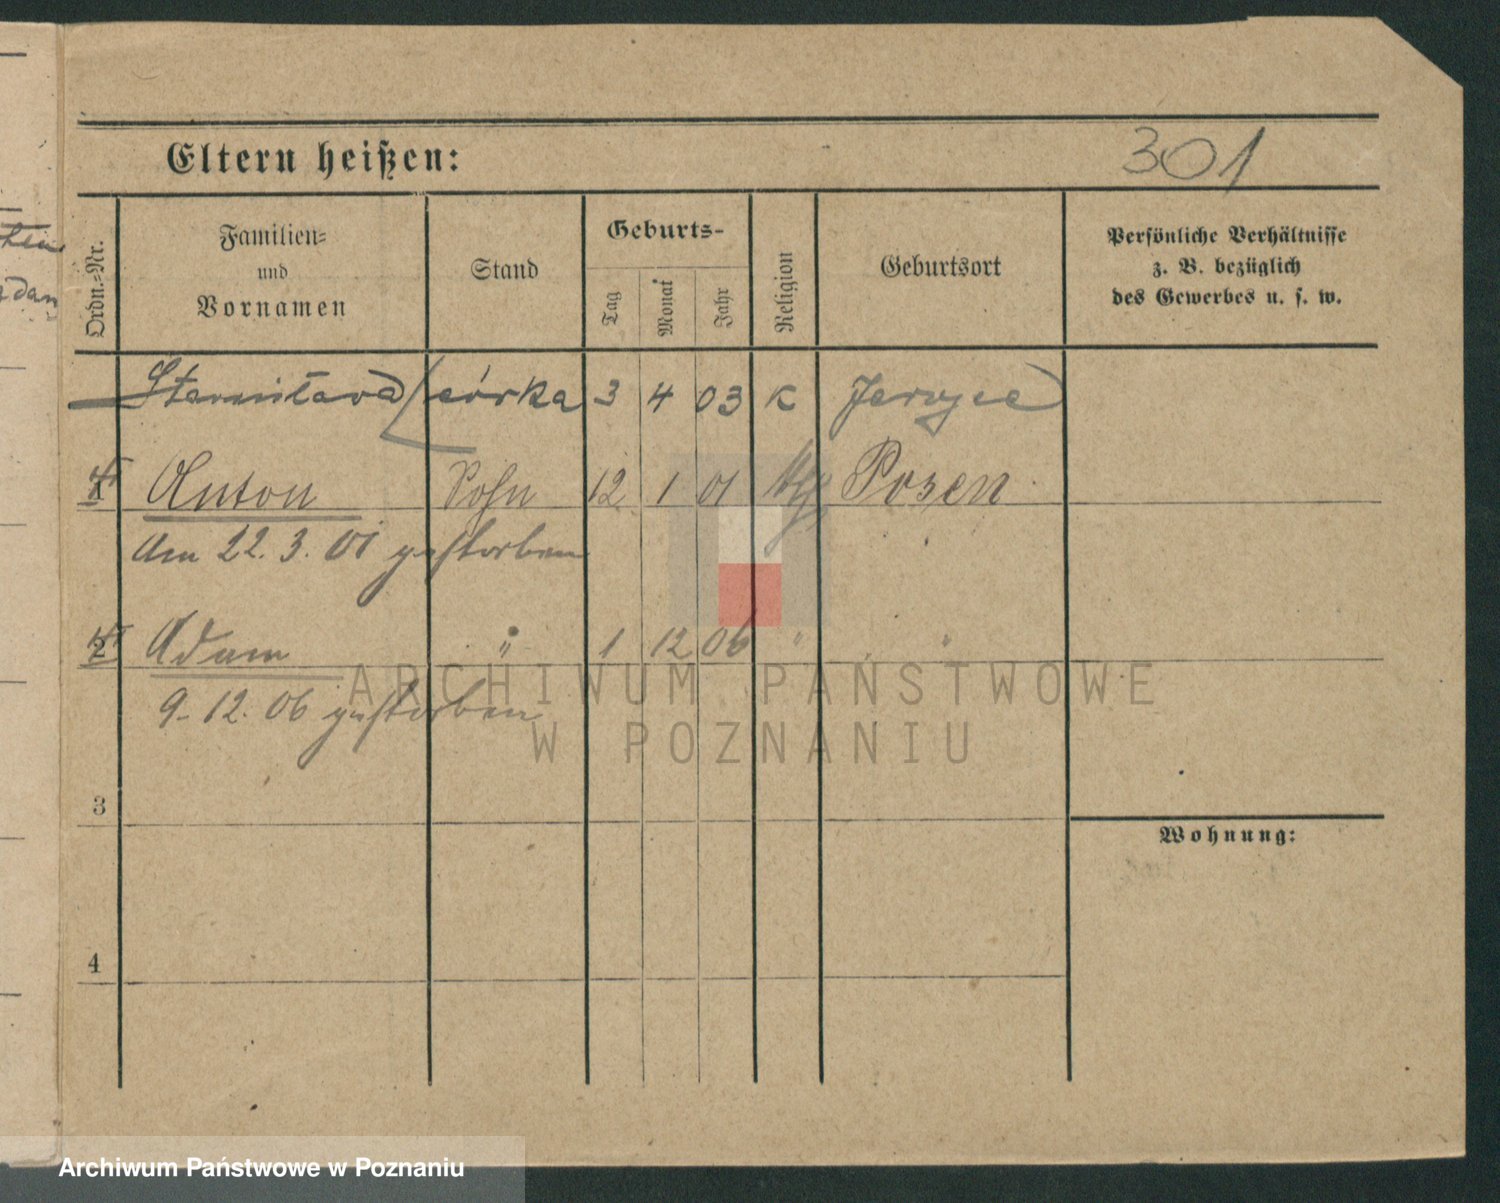 Eltern heißen:
301
Ordn.-Nr.
Familien-
und
Vornamen
Stand
Geburts-
Tag
Monat
Jahr
Religion
Geburtsort
Persönliche Verhältnisse
z. B. bezüglich
des Gewerbes u. s. w.
Stanisława córka 3 4 03 K Jerzyce
1 Anton Sohn 12 1 01 Posen
Am 22. 3. 01 gestorben
2 Adam " 1 12 06 " "
9. 12. 06 gestorben
3
Wohnung:
4
ARCHIWUM PAŃSTWOWE
W POZNANIU
Archiwum Państwowe w Poznaniu